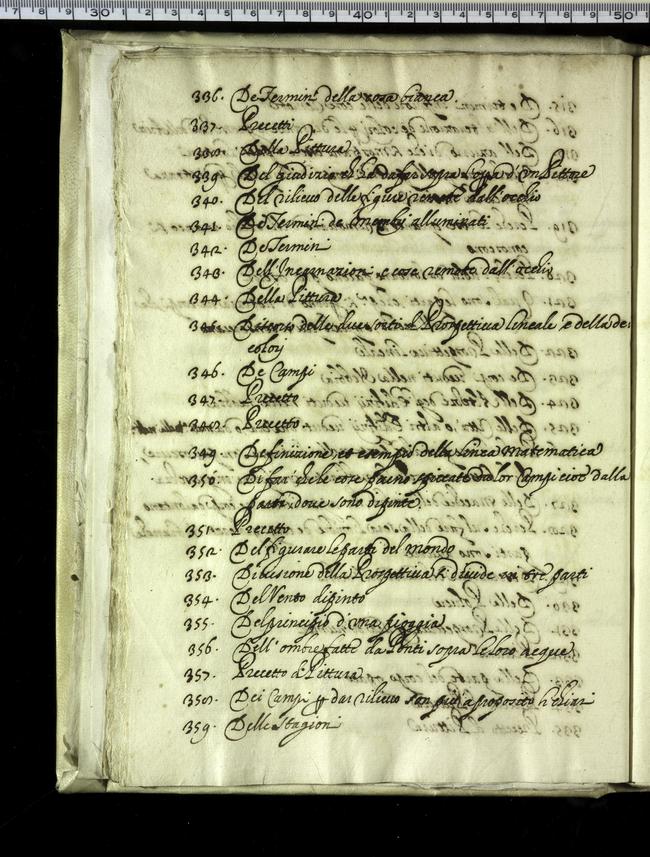 336. De Termini della cosa bianca
337. Precetti
338. Della Pittura
339. Del Giudizio ch'ha da far sopra l'opra d'un Pittore
340. Del rilievo delle figure remote dall'occhio
341. De Termini de membri alluminati
342. De Termini
343. Dell'Incarnazioni e cose remote dall'occhio
344. Della Pittura
345. Discorso delle due sorti di Prospettiva lineale, e della de
colorj
346. De Campi
347. Precetto
348. Precetto
349. Definizione, et esempij della linea Matematica
350. Di far che le cose paino spiccate da lor Campi cioè dalla
parti doue sono dipinte
351. Precetto
352. Del figurare le parti del mondo
353. Diuisione della Prospettiua si diuide in tre parti
354. Del Vento dipinto
355. Del principio d'una pioggia
356. Dell'ombre fatte da Ponti sopra le loro acque
357. Precetto di Pittura
358. Dei Campi dar rilieuo son più a proposito li chiari
359. Delle Stagioni